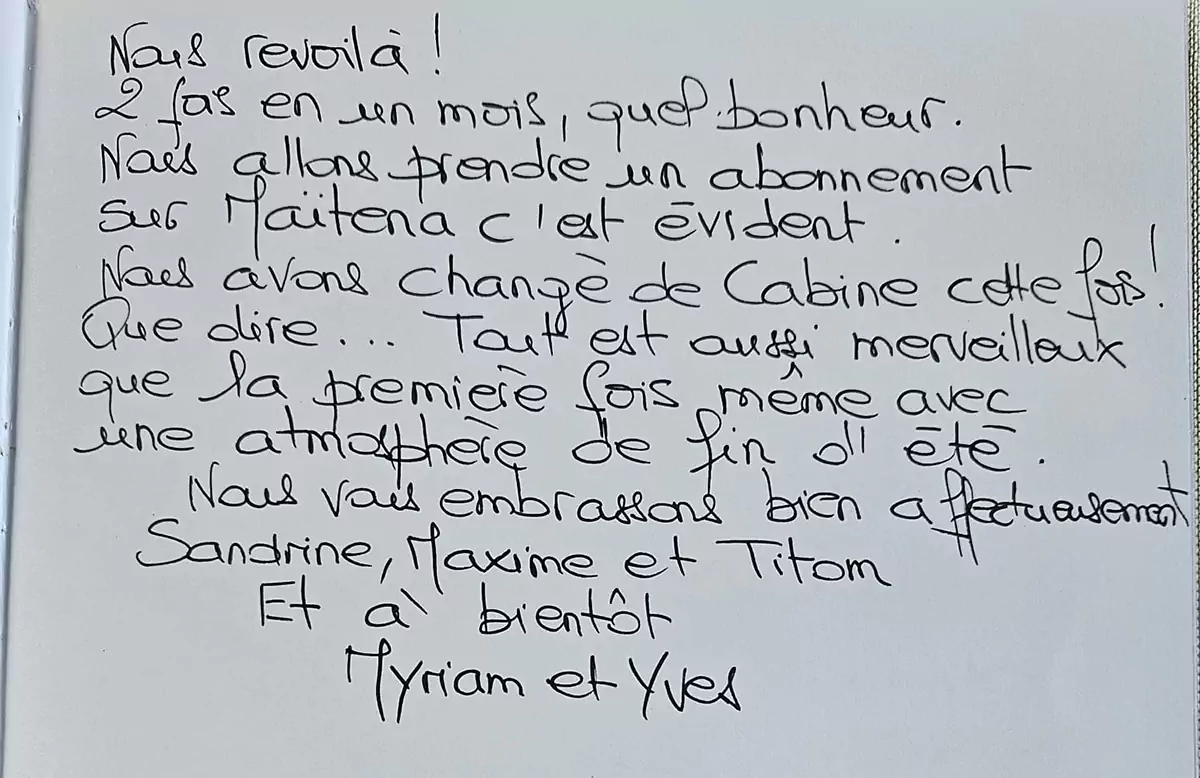 Nous revoilà !
2 fois en un mois, quel bonheur.
Nous allons prendre un abonnement
sur Maïtena c'est évident.
Nous avons changé de Cabine cette fois !
Que dire... Tout est aussi merveilleux
que la première fois même avec
une atmosphère de fin d'été.
Nous vous embrassons bien affectueusement
Sandrine, Maxime et Titom
Et à bientôt
Myriam et Yves